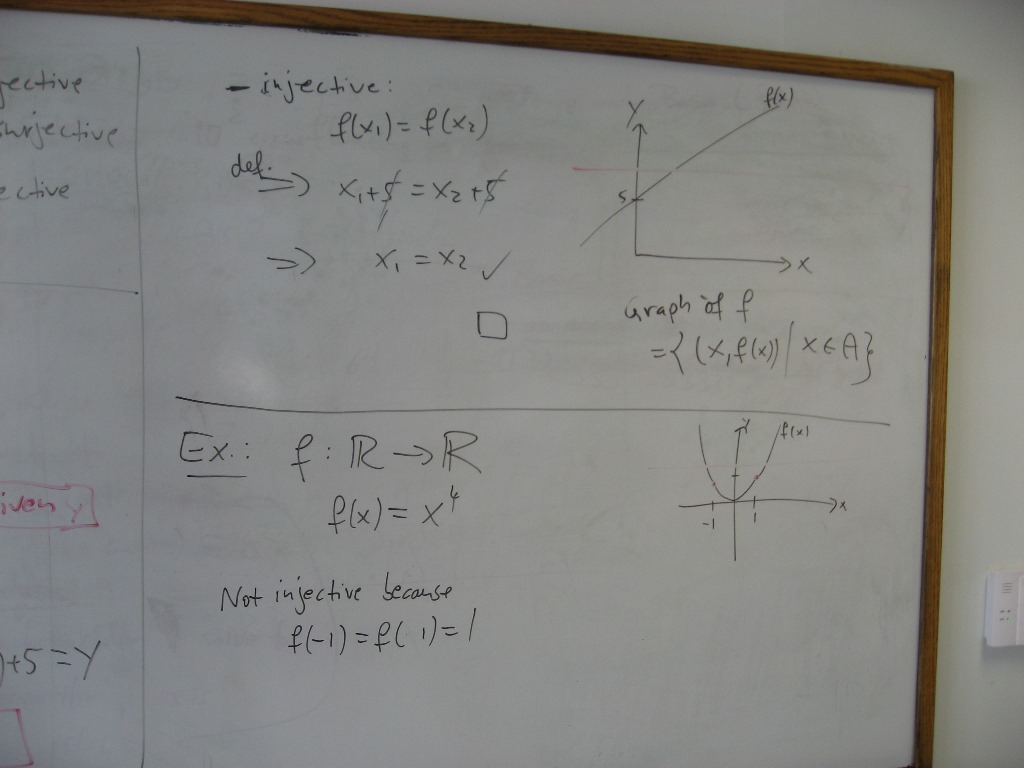 jective
surjective
ective
iven y
)+5 = y
- injective:
f(x₁) = f(x₂)
def.
⇒ x₁+5 = x₂+5
⇒ x₁ = x₂ ✓
□
Y
f(x)
5
x
Graph of f
= {(x, f(x)) | x ∈ A}
Ex.: f : ℝ → ℝ
f(x) = x⁴
Not injective because
f(-1) = f( 1) = 1
Y
f(x)
-1 1
x